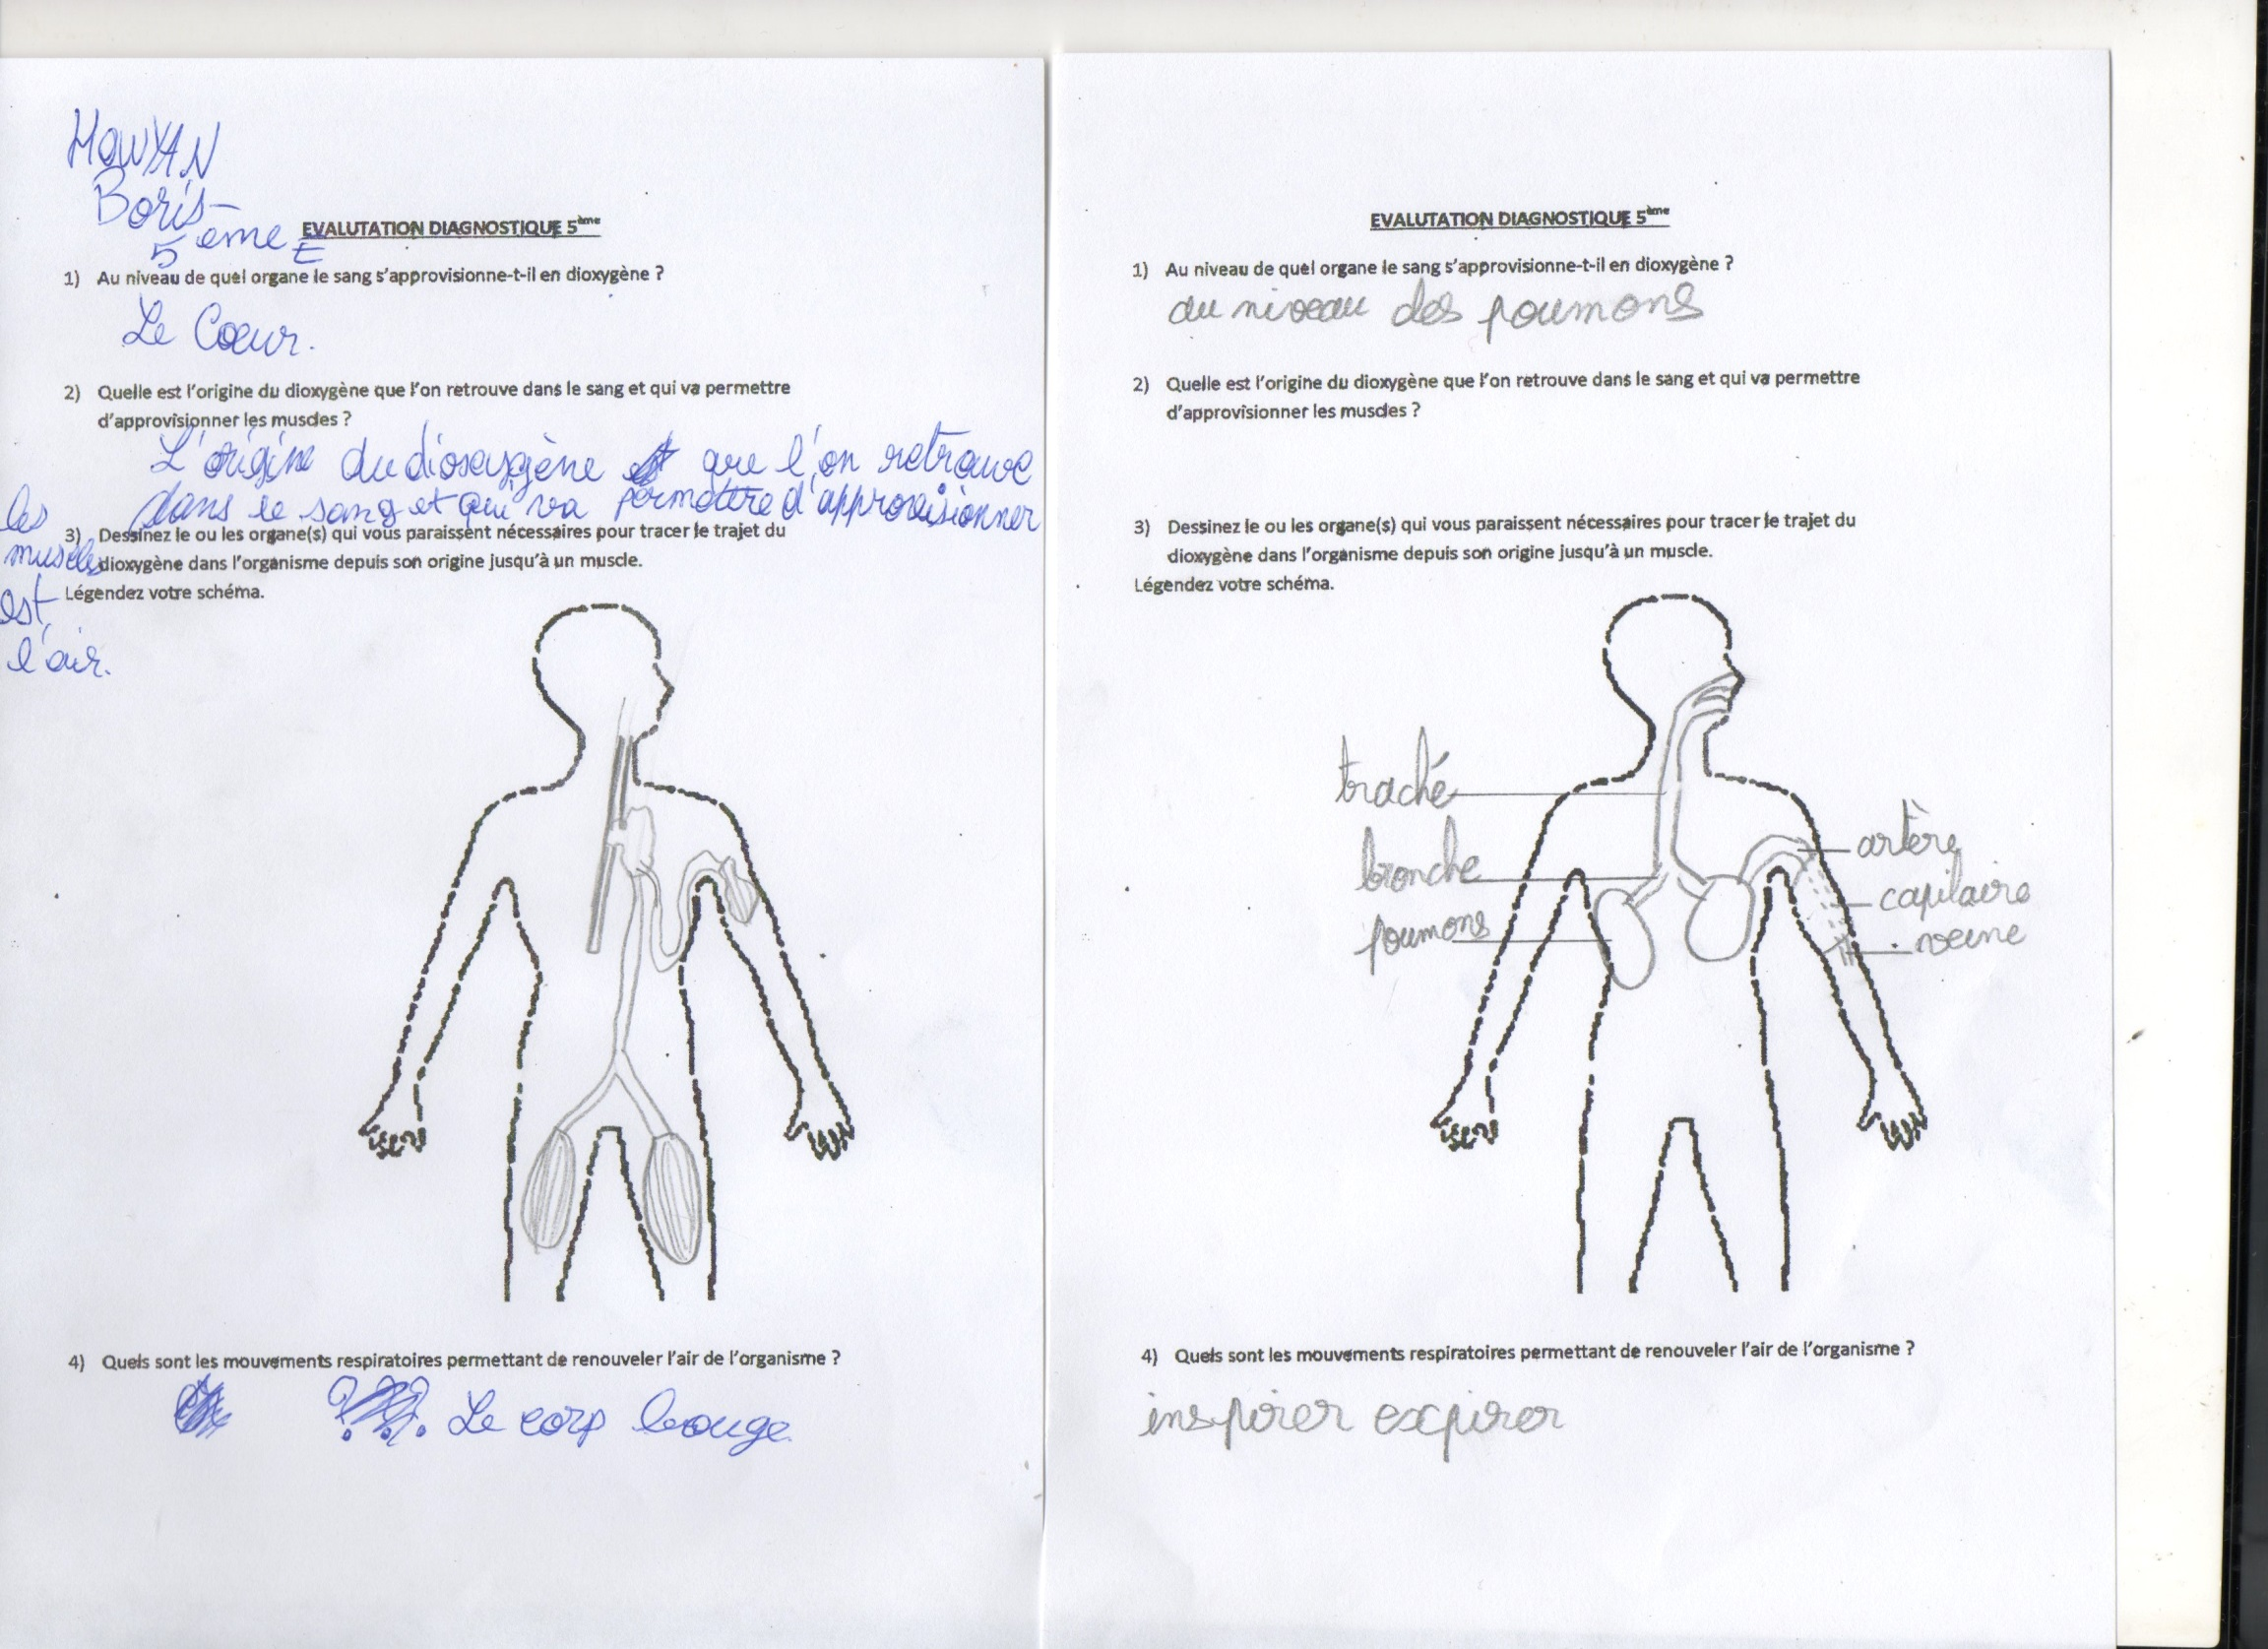 HOWYAN
Boris
5 eme E
EVALUTATION DIAGNOSTIQUE 5ème
1) Au niveau de quel organe le sang s'approvisionne-t-il en dioxygène ?
Le Coeur.
2) Quelle est l'origine du dioxygène que l'on retrouve dans le sang et qui va permettre
d'approvisionner les muscles ?
L'origine du dioxygène que l'on retrouve
dans le sang et qui va permettre d'approvisionner
les
muscles
est
l'air.
3) Dessinez le ou les organe(s) qui vous paraissent nécessaires pour tracer le trajet du
dioxygène dans l'organisme depuis son origine jusqu'à un muscle.
Légendez votre schéma.
4) Quels sont les mouvements respiratoires permettant de renouveler l'air de l'organisme ?
Le corp bouge
EVALUTATION DIAGNOSTIQUE 5ème
1) Au niveau de quel organe le sang s'approvisionne-t-il en dioxygène ?
au niveau des poumons
2) Quelle est l'origine du dioxygène que l'on retrouve dans le sang et qui va permettre
d'approvisionner les muscles ?
3) Dessinez le ou les organe(s) qui vous paraissent nécessaires pour tracer le trajet du
dioxygène dans l'organisme depuis son origine jusqu'à un muscle.
Légendez votre schéma.
traché
bronche
poumons
artère
capilaire
veine
4) Quels sont les mouvements respiratoires permettant de renouveler l'air de l'organisme ?
inspirer expirer